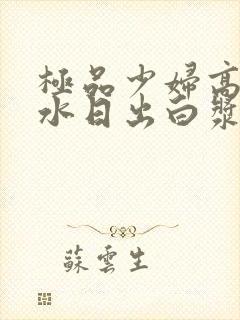 極品少婦高
水日出白漿
蘇雲生